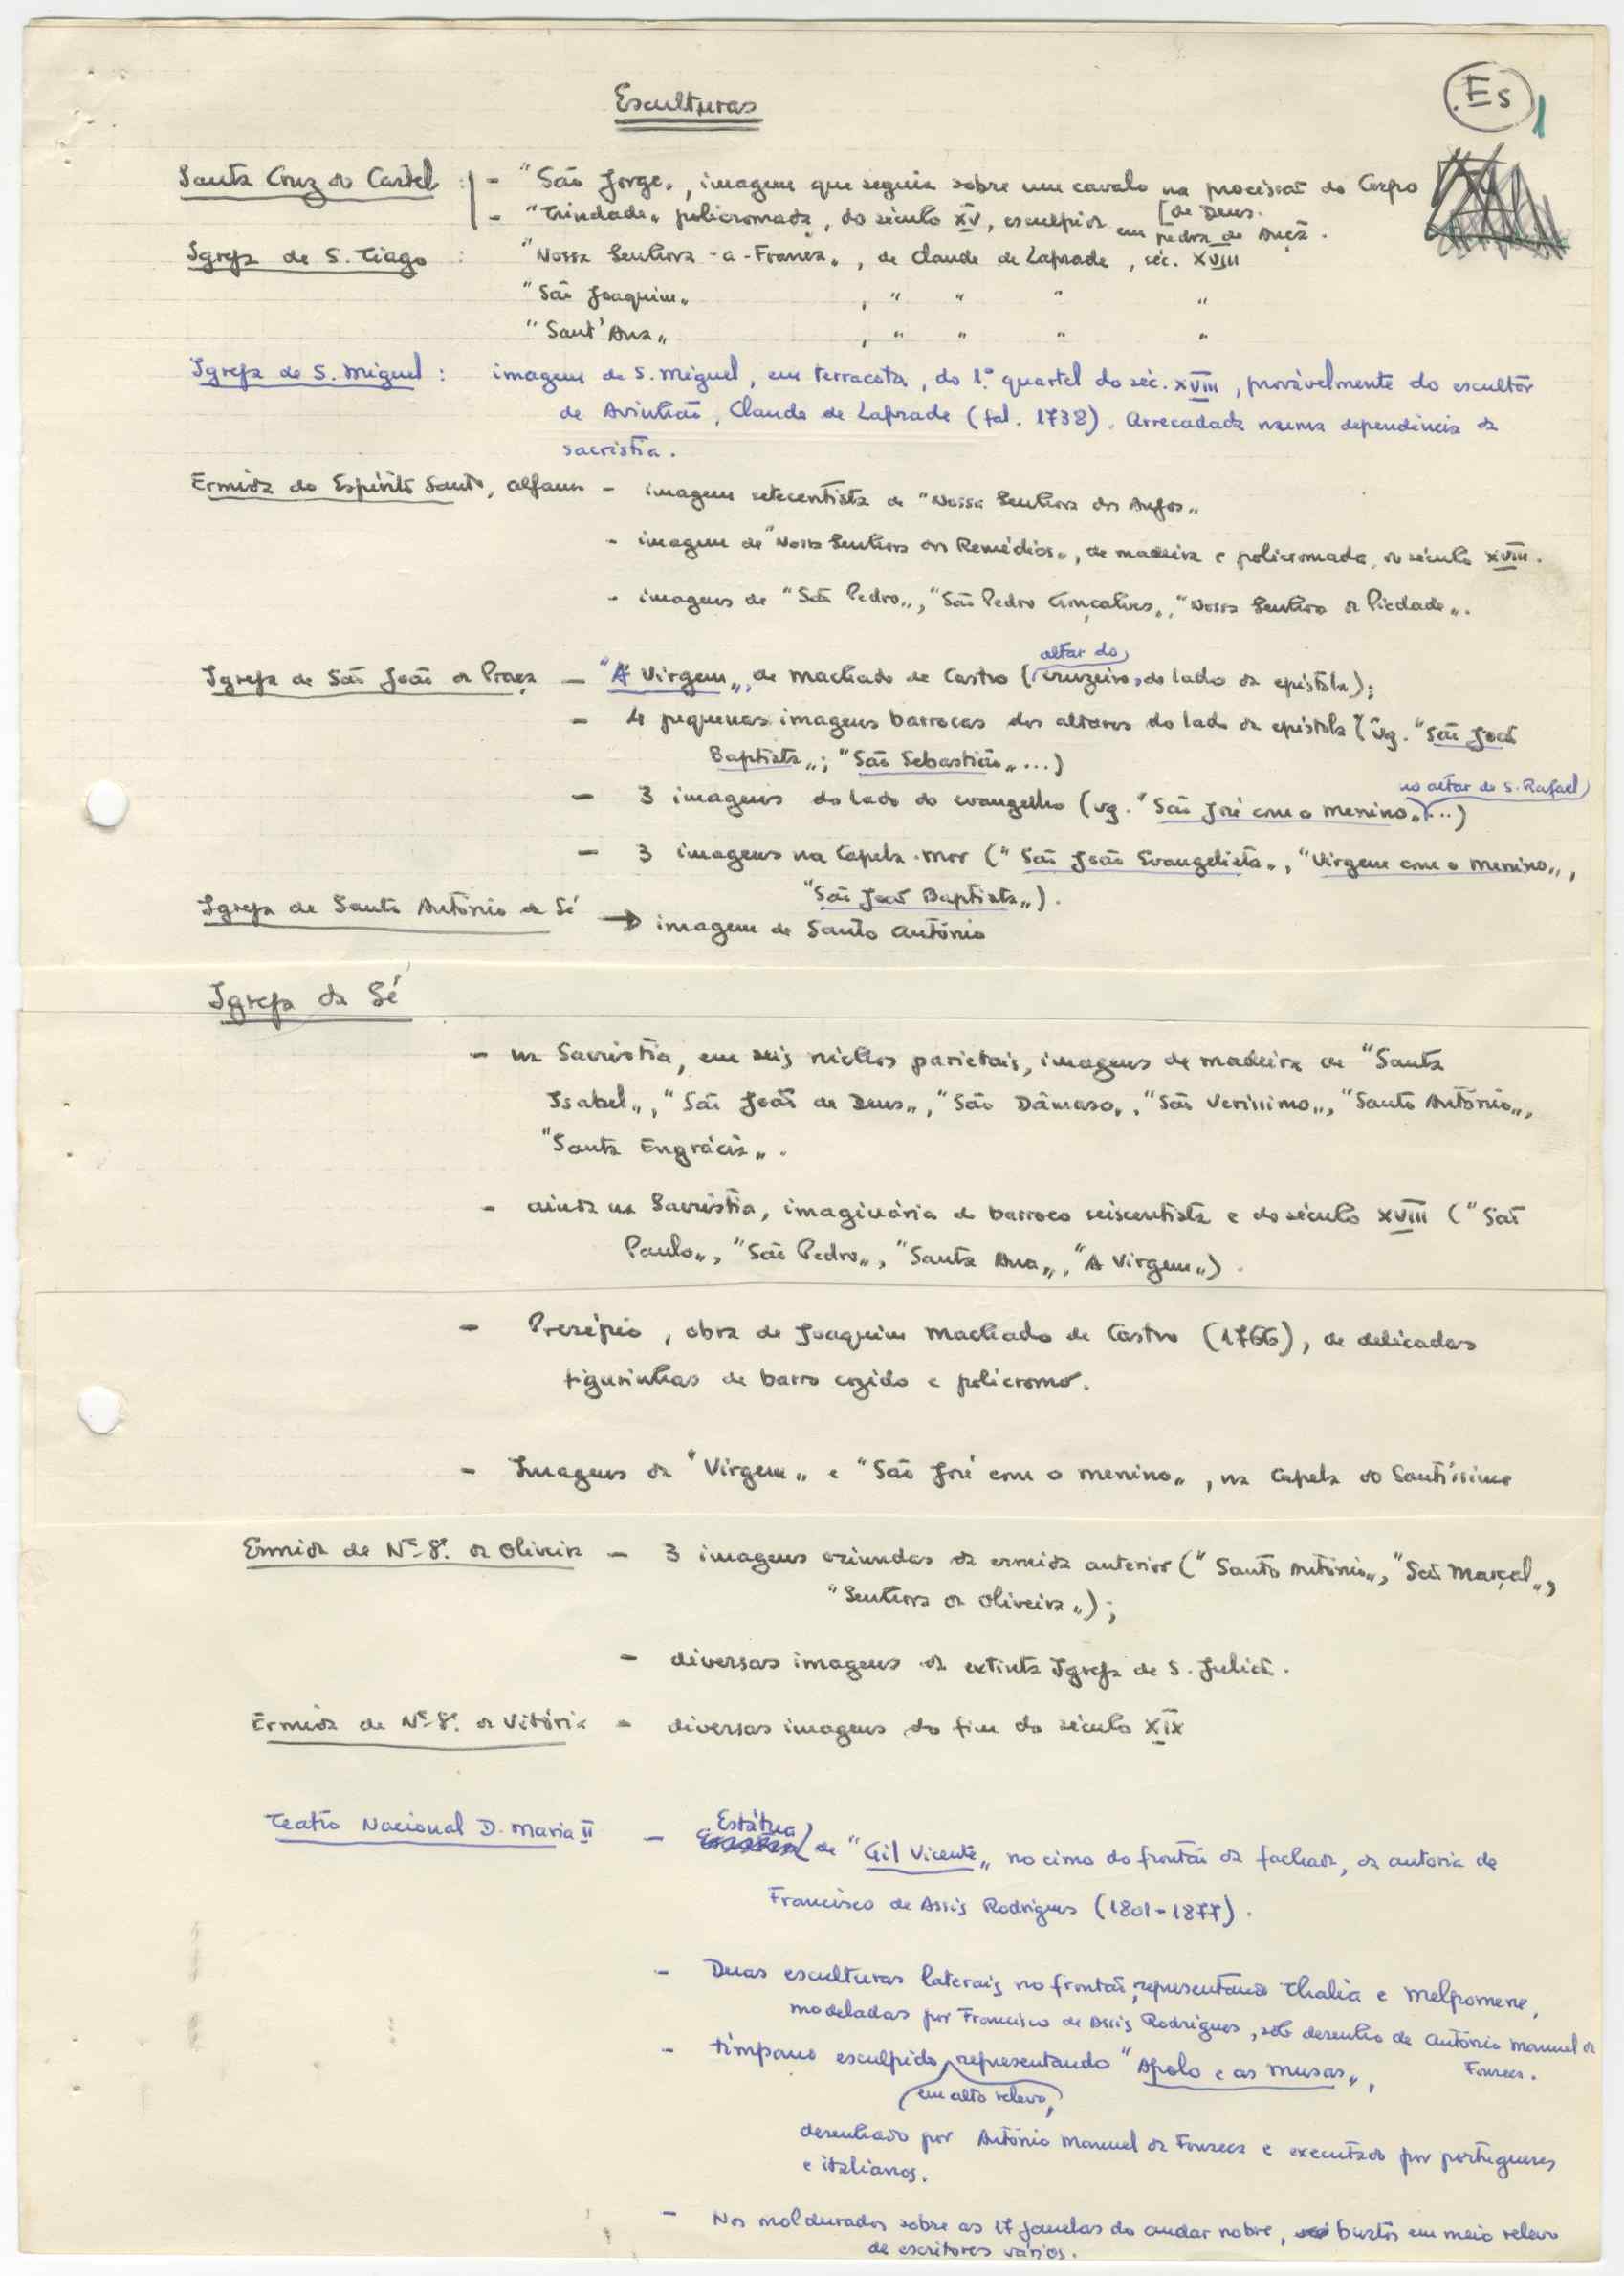 Esculturas
Es 1
Santa Cruz do Castelo : - "São Jorge„, imagem que seguia sobre um cavalo na procissão do Corpo
[de Deus.
- "Trindade„ policromada, do século XV, esculpida em pedra de Ançã.
Igreja de S. Tiago : "Nossa Senhora-a-Franca„, de Claude de Laprade, séc. XVIII
"São Joaquim„ , " " " "
"Sant'Ana„ , " " " "
Igreja de S. Miguel : imagem de S. Miguel, em terracota, do 1.º quartel do séc. XVIII, provàvelmente do escultor
de Avinhão, Claude de Laprade (fal. 1738). Arrecadada numa dependência da
sacristia.
Ermida do Espírito Santo, Alfama - imagem setecentista de "Nossa Senhora dos Anjos„
- imagem de "Nossa Senhora dos Remédios„, de madeira e policromada, do século XVIII.
- imagens de "São Pedro„, "São Pedro Gonçalves„, "Nossa Senhora da Piedade„.
altar do
Igreja de São João da Praça - "A Virgem„, de Machado de Castro (cruzeiro, do lado da epístola);
- 4 pequenas imagens barrocas dos altares do lado da epístola (vg. "São João
Baptista„; "São Sebastião„...)
no altar de S. Rafael
- 3 imagens do lado do evangelho (vg. "São José com o menino„...)
- 3 imagens na Capela-mor ("São João Evangelista„, "Virgem com o menino„,
"São João Baptista„).
Igreja de Santo António da Sé → imagem de Santo António
Igreja da Sé
- na Sacristia, em seis nichos parietais, imagens de madeira de "Santa
Isabel„, "São João de Deus„, "São Dâmaso„, "São Veríssimo„, "Santo António„,
"Santa Engrácia„.
- ainda na Sacristia, imaginária do barroco seiscentista e do século XVIII ("São
Paulo„, "São Pedro„, "Santa Ana„, "A Virgem„).
- Presépio, obra de Joaquim Machado de Castro (1766), de delicadas
figurinhas de barro cozido e policromo.
- Imagens da "Virgem„ e "São José com o menino„, na Capela do Santíssimo
Ermida de Nª. Sª. da Oliveira - 3 imagens oriundas da ermida anterior ("Santo António„, "São Marçal„,
"Senhora da Oliveira„);
- diversas imagens da extinta Igreja de S. Julião.
Ermida de Nª. Sª. da Vitória - diversas imagens do fim do século XIX
Estátua
Teatro Nacional D. Maria II - de "Gil Vicente„ no cimo do frontão da fachada, da autoria de
Francisco de Assis Rodrigues (1801-1877).
- Duas esculturas laterais no frontão, representando Thalia e Melpomene,
modeladas por Francisco de Assis Rodrigues, sob desenho de António Manuel da
Fonseca.
- tímpano esculpido representando "Apolo e as Musas„,
em alto relevo,
desenhado por António Manuel da Fonseca e executado por portugueses
e italianos.
- Nos moldurados sobre as 17 janelas do andar nobre, bustos em meio relevo
de escritores vários.